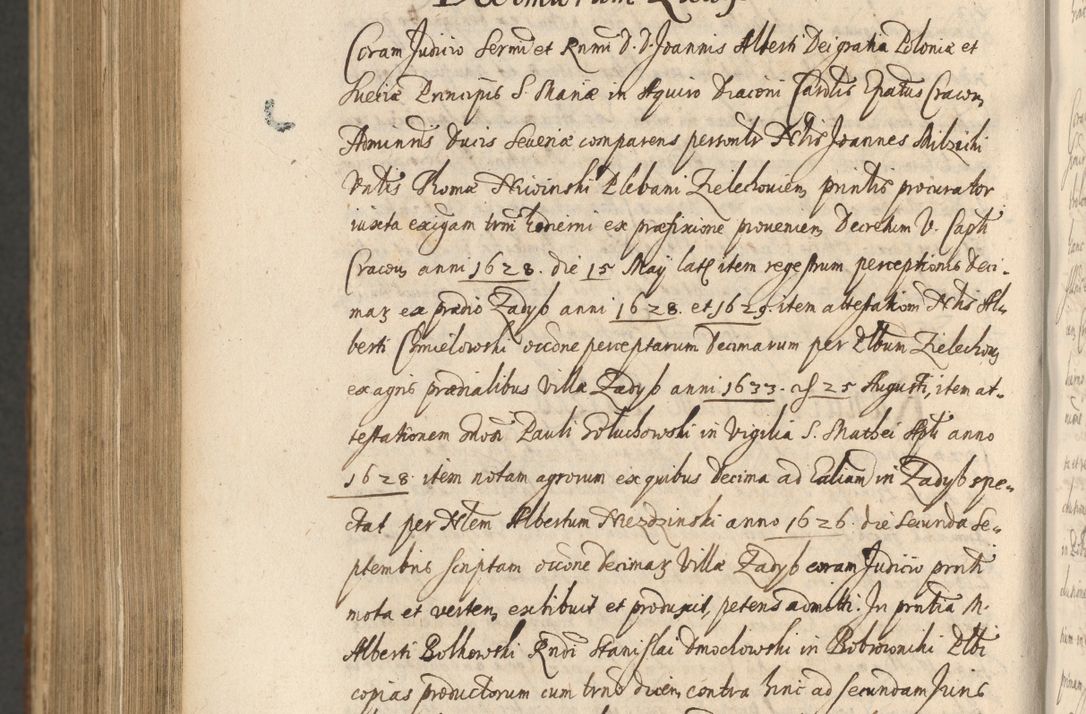 Coram Judicio Sermi et Rnmi D. D. Joannis Alberti Dei gratia Poloniæ et
Sueciæ Principis S. Mariæ in Aquiro Diaconi Cardlis Epatus Cracoų
Adminris Ducis Severiæ comparens personlr Nlis Joannes Milzicki
Vntis Thomæ Niwinski Plebani Zielechovieņ printis procurator
iuxta exigam trm hodierni ex præfixione provenieņ Decretum V. Caplt
Cracoų anni 1628. die 15 May lati item regestrum perceptionis Deci-
maꝝ ex prædio Zadyb anni 1628. et 1629. item attestationem Nlis Al-
berti Chmielowski occone perceptarum Decimarum per Plbum Zielechoų
ex agris prædialibus Villæ Zadyb anni 1633. 25 Augusti, item at-
testationem Pauli Goluchowski in Vigilia S. Mathei Apli anno
1628. item notam agrorum ex quibus Decima ad Ecliam in Zadyb spe-
ctat per Nlem Albertum Niezdzinski anno 1626. die Secunda Se-
ptembris scriptam occone Decimaꝝ Villæ Zadyb coram Judicio prnti
mota et verteņ exhibuit et produxit, petens admitti. In prntia N.
Alberti Bolkowski Rndi Stanislai Dmochowski in Bobrowniki Plbi
copias productorum cum trno Diceņ contra hinc ad secundam Juris